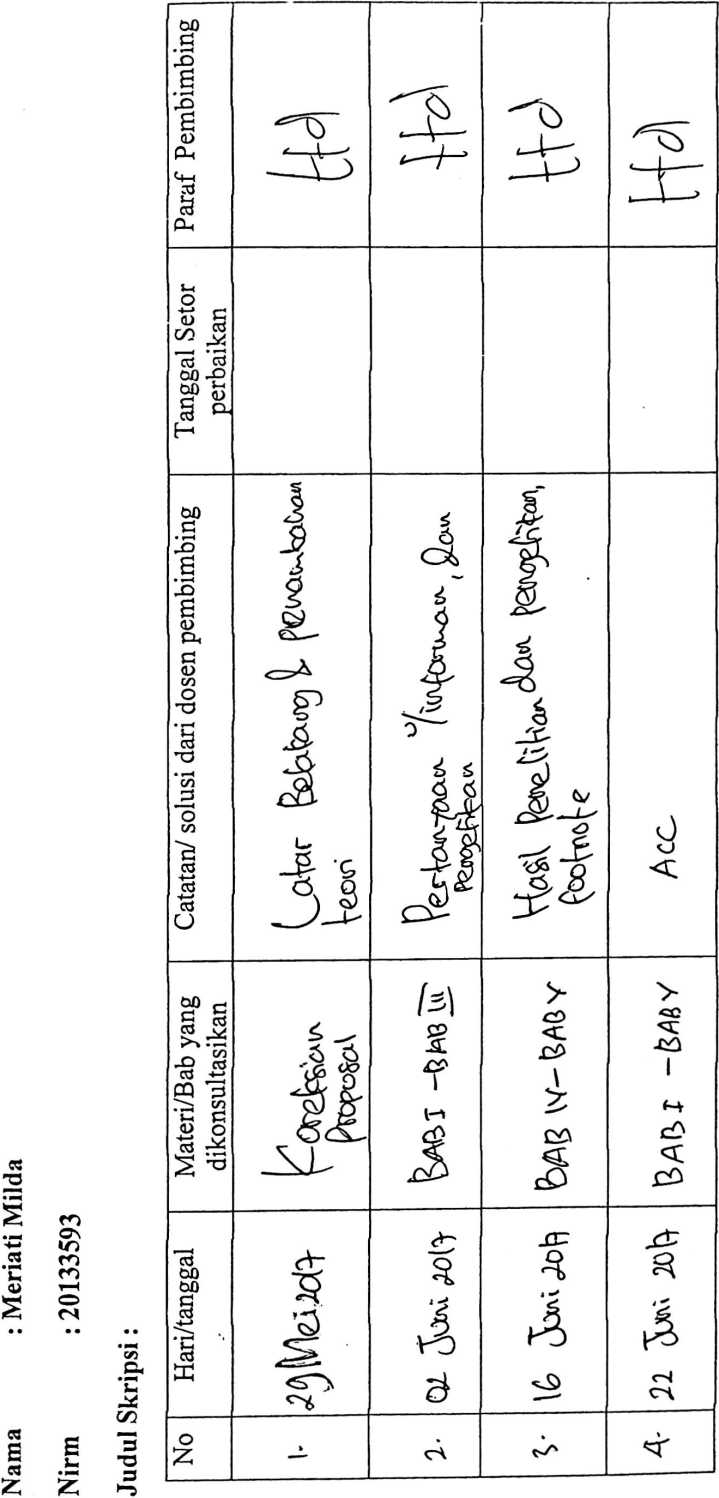 Nama : Meriati Milda
Nirm : 20133593
Judul Skripsi :
No Hari/tanggal Materi/Bab yang dikonsultasikan Catatan/ solusi dari dosen pembimbing Tanggal Setor perbaikan Paraf Pembimbing
1. 29 Mei 2017 Koreksian Proposal Latar Belakang & penambahan teori
2. 02 Juni 2017 BAB I - BAB III Pertanyaan u/informan, dan Pengetikan
3. 16 Juni 2017 BAB IV - BAB V Hasil Penelitian dan pengetikan, footnote
4. 22 Juni 2017 BAB I - BAB V ACC